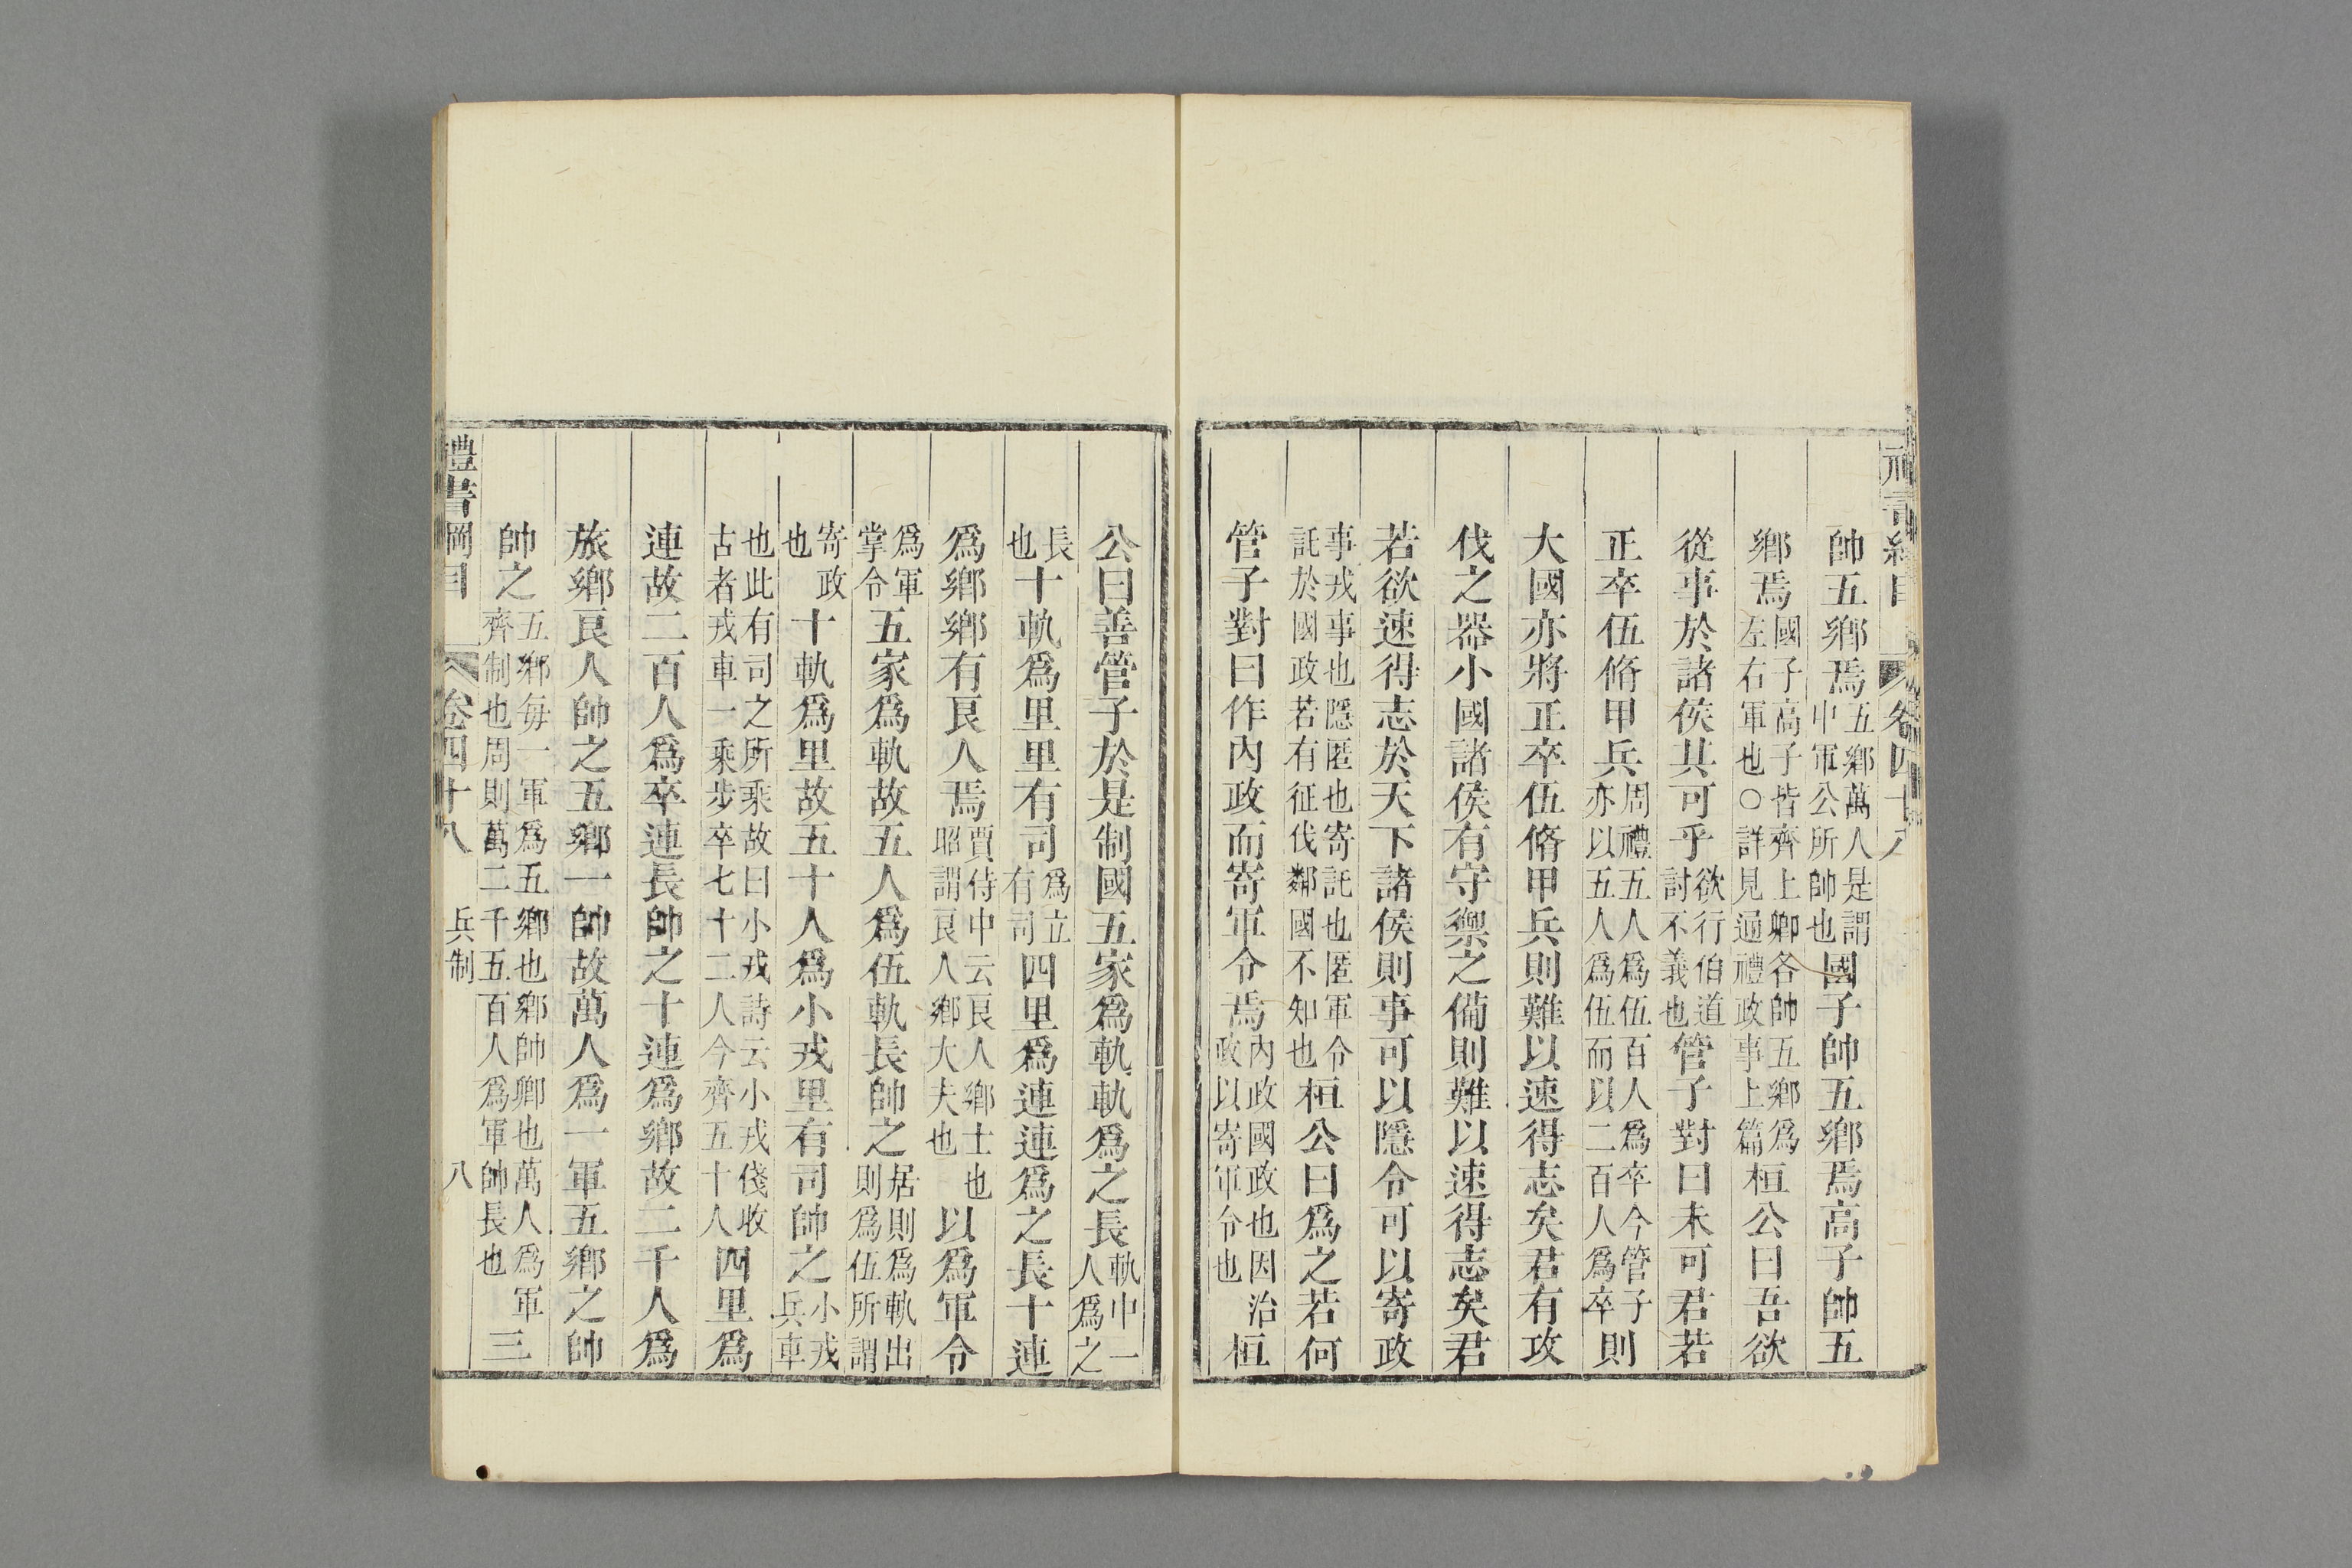 帥五鄉焉五鄉萬人是謂中軍公所帥也國子帥五鄉焉高子帥五
鄉焉國子高子皆齊上卿各帥五鄉爲左右軍也○詳見通禮政事上篇桓公曰吾欲
從事於諸侯其可乎欲行伯道討不義也管子對曰未可君若
正卒伍脩甲兵周禮五人爲伍百人爲卒今管子亦以五人爲伍而以二百人爲卒則
大國亦將正卒伍脩甲兵則難以速得志矣君有攻
伐之器小國諸侯有守禦之備則難以速得志矣君
若欲速得志於天下諸侯則事可以隱令可以寄政
事戎事也隱匿也寄託也匿軍令託於國政若有征伐鄰國不知也桓公曰爲之若何
管子對曰作內政而寄軍令焉內政國政也因治政以寄軍令也桓
公曰善管子於是制國五家爲軌軌爲之長軌中一人爲之
長也十軌爲里里有司爲立有司四里爲連連爲之長十連
爲鄉鄉有良人焉賈侍中云良人鄉士也昭謂良人鄉大夫也以爲軍令
爲軍掌令五家爲軌故五人爲伍軌長帥之居則爲軌出則爲伍所謂
寄政也十軌爲里故五十人爲小戎里有司帥之小戎兵車
也此有司之所乘故曰小戎詩云小戎俴收古者戎車一乘步卒七十二人今齊五十人四里爲
連故二百人爲卒連長帥之十連爲鄉故二千人爲
旅鄉良人帥之五鄉一帥故萬人爲一軍五鄉之帥
帥之五鄉每一軍爲五鄉也鄉帥卿也萬人爲軍齊制也周則萬二千五百人爲軍帥長也三
禮書綱目 卷四十八 兵制 八